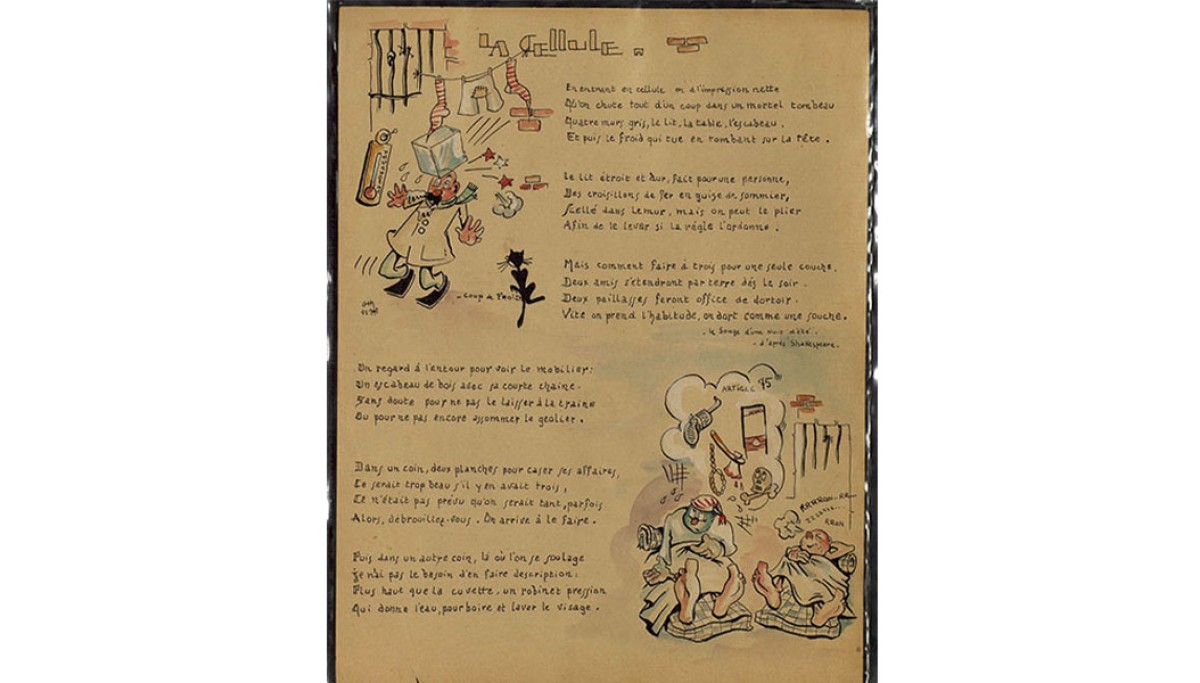 LA CELLULE.
En entrant en cellule on a l'impression nette
Qu'on chute tout d'un coup dans un mortel tombeau
Quatre murs gris, le lit, la table, l'escabeau.
Et puis le froid qui tue en tombant sur la tête.
Le lit étroit et dur, fait pour une personne,
Des croisillons de fer en guise de sommier,
Scellé dans le mur, mais on peut le plier
Afin de le lever si la règle l'ordonne.
- Coup de Froid
Mais comment faire à trois pour une seule couche.
Deux amis s'étendront par terre dès le soir.
Deux paillasses feront office de dortoir.
Vite on prend l'habitude, on dort comme une souche.
- le Songe d'une nuit d'été -
- d'après Shakespeare.
Un regard à l'entour pour voir le mobilier:
Un escabeau de bois avec sa courte chaine.
Sans doute pour ne pas le laisser à la traine
Ou pour ne pas encore assommer le geolier.
Dans un coin, deux planches pour caser ses affaires,
Ce serait trop beau s'il y en avait trois,
Et n'était pas prévu qu'on serait tant, parfois
Alors, débrouillez-vous. On arrive à le faire.
Puis dans un autre coin, là où l'on se soulage
Je n'ai pas le besoin d'en faire description:
Plus haut que la cuvette, un robinet pression
Qui donne l'eau, pour boire et laver le visage.
ARTICLE 75
RRRRON..RR...
ZZZZZZ...
RRON